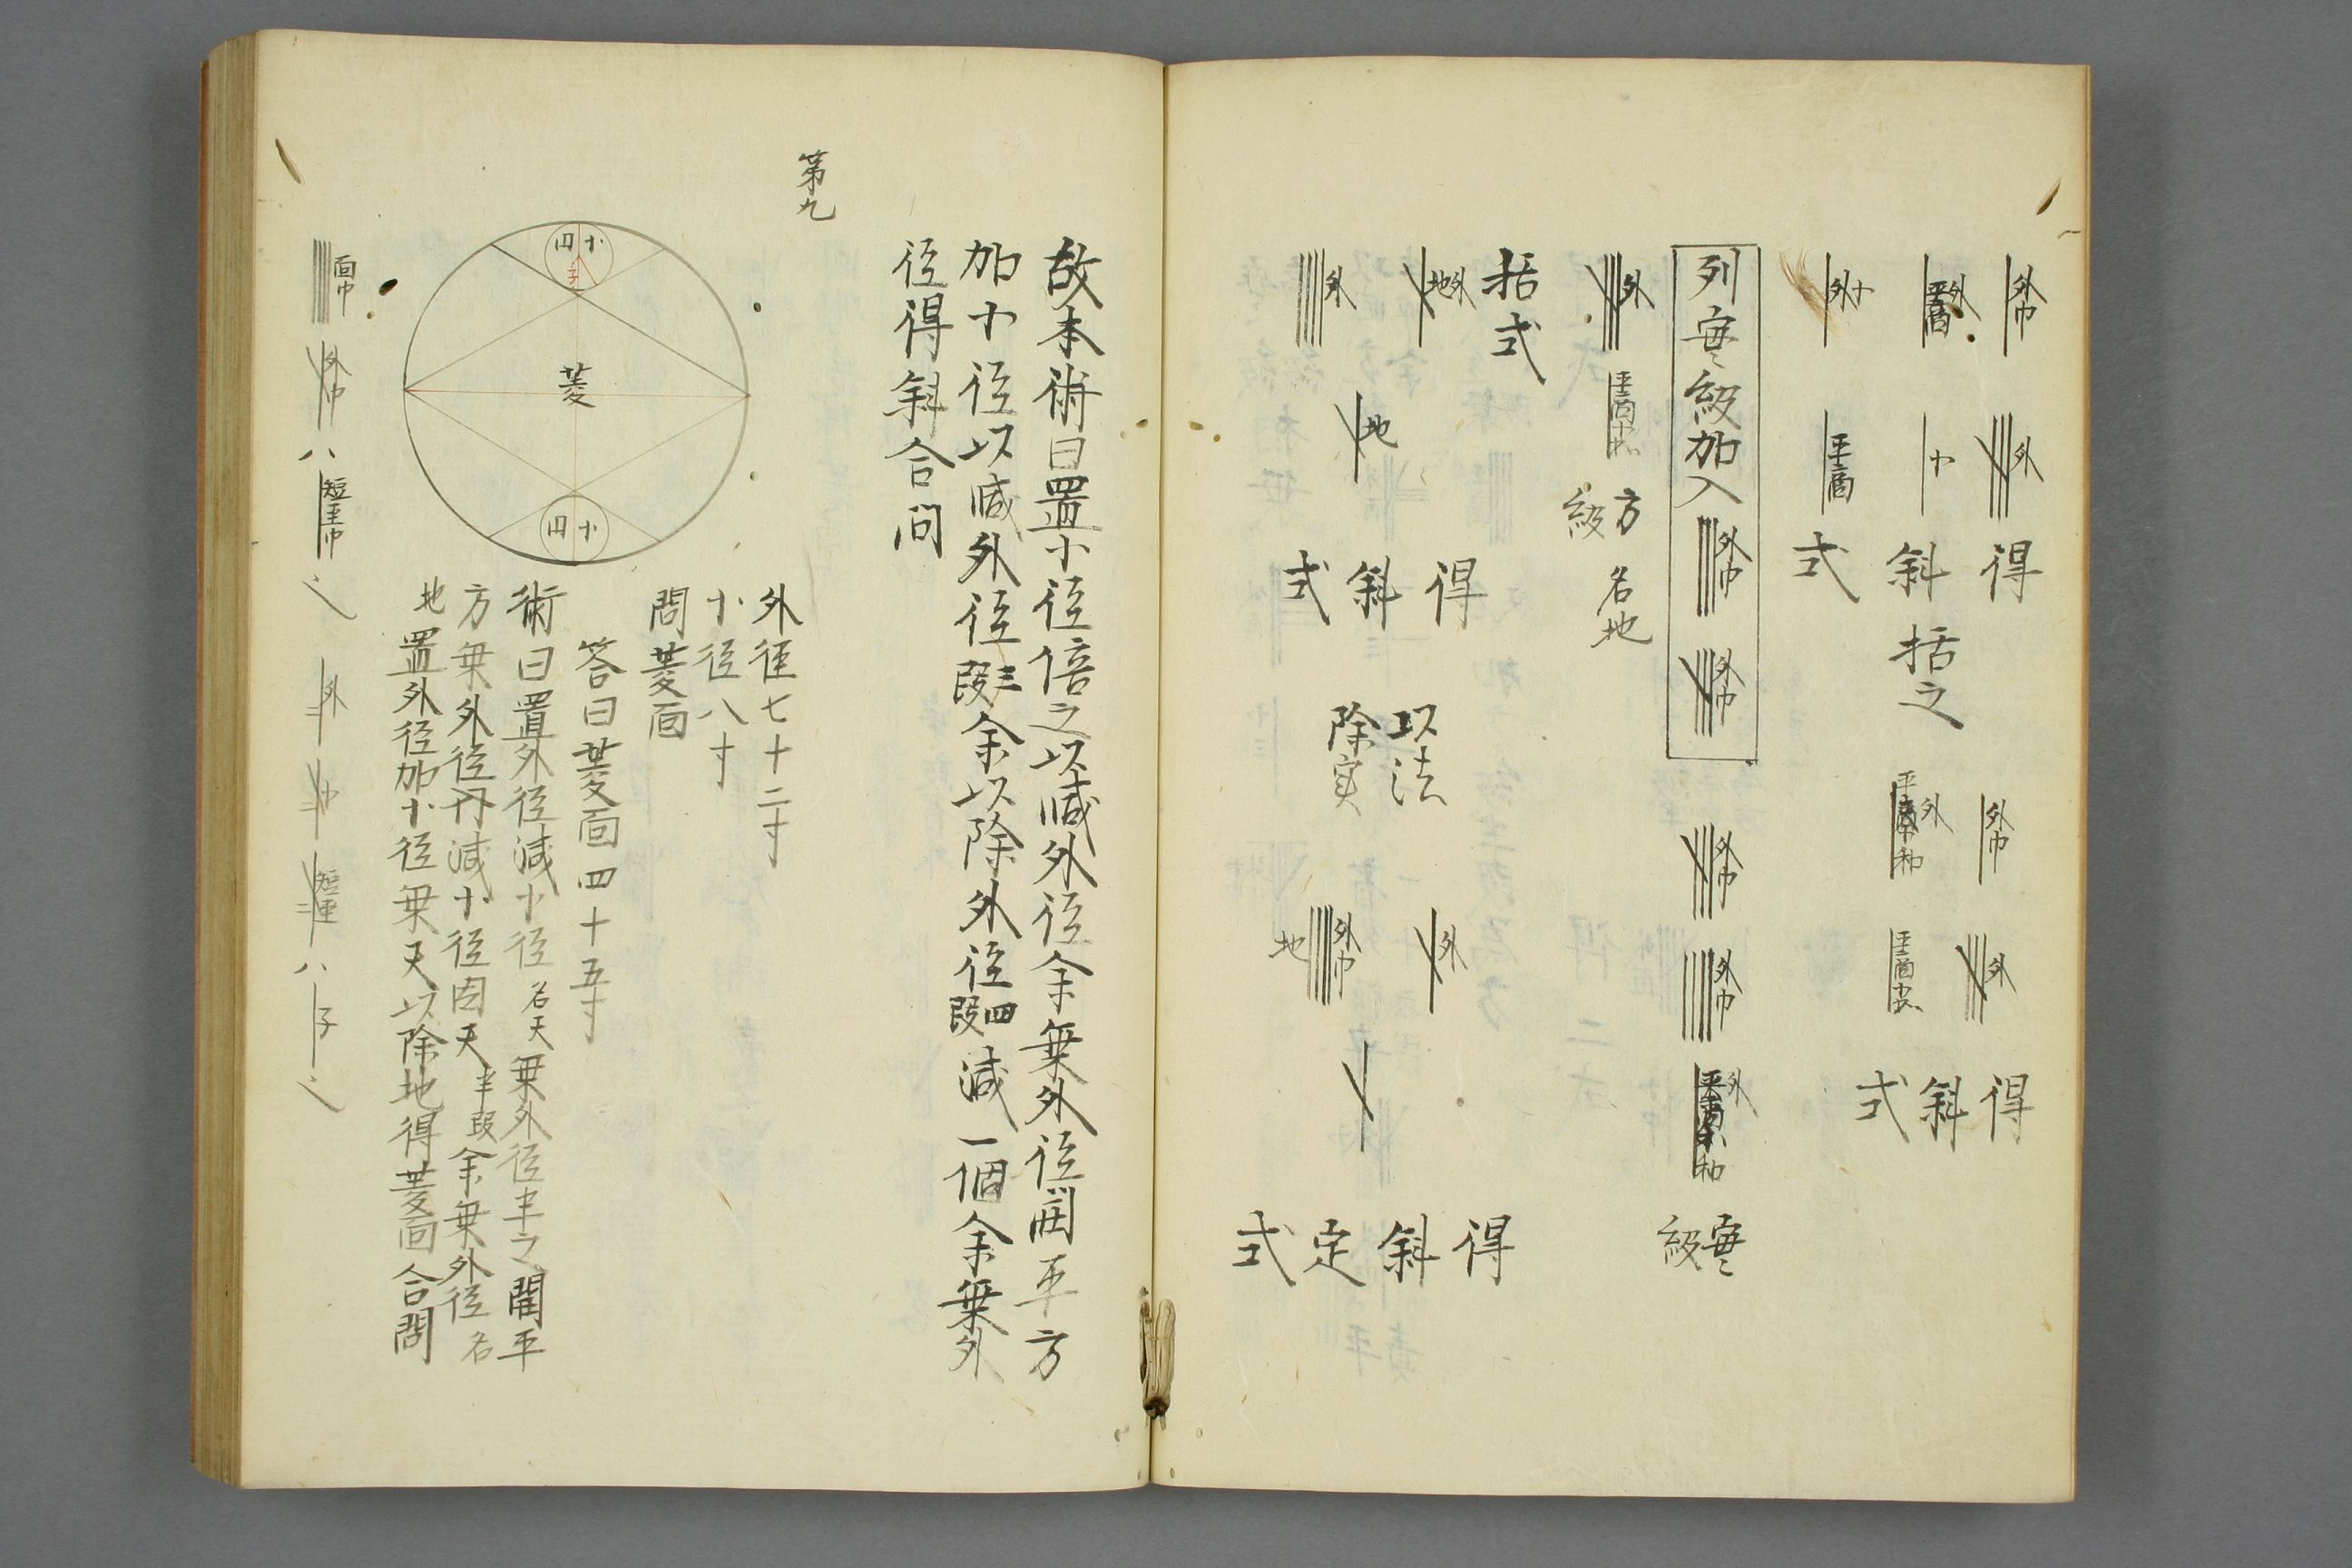 外巾 外 得
外 平商 小 斜 括之
小外 平商 式
外巾 外 得
外 平商 和 斜
式
列実級加入 外巾 外巾
外巾 外巾 外 和 実級
外 方級 名地
括式
外地 得
地 斜
外 式
以法
除実
外 得
外巾 地 斜
定
式
故本術曰置小径倍之以減外径余乗外径開平方
加小径以減外径三段余以除外径四段減一個余乗外
径得斜合問
第九
小円
子
菱
小円
外径七十二寸
小径八寸
問菱面
答曰菱面四十五寸
術曰置外径減小径名天乗外径半之開平
方乗外径再減小径因天半段余乗外径名
地置外径加小径乗天以除地得菱面合問
面巾 外巾 八 短 巾
外 小 短 八 子